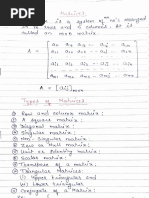 Matrices
is a system of mn no's arranged
in m rows and n columns.
called an mxn matrix
a₁₁ a₁₂ a₁₃ ... a₁ₙ
a₂₁ a₂₂ a₂₃ ... a₂ₙ
A =
aᵢ₁ aᵢ₂ aᵢ₃
aₘ₁ aₘ₂ aₘ₃ aₘₙ
A = [aᵢⱼ]ₘₓₙ
Types of Matrices
① Row and column matrix:
② A square matrix:
③ Diagonal matrix:
④ Singular matrix:
⑤ matrix:
⑥ Zero or Null matrix:
⑦ Unit or Identity matrix:
⑧ Scalar matrix:
⑨ Transpose of a matrix:
⑩ Triangular Matrices:
i) Upper triangular and
ii) Lower triangular
⑪ Conjugate of a Matrix: